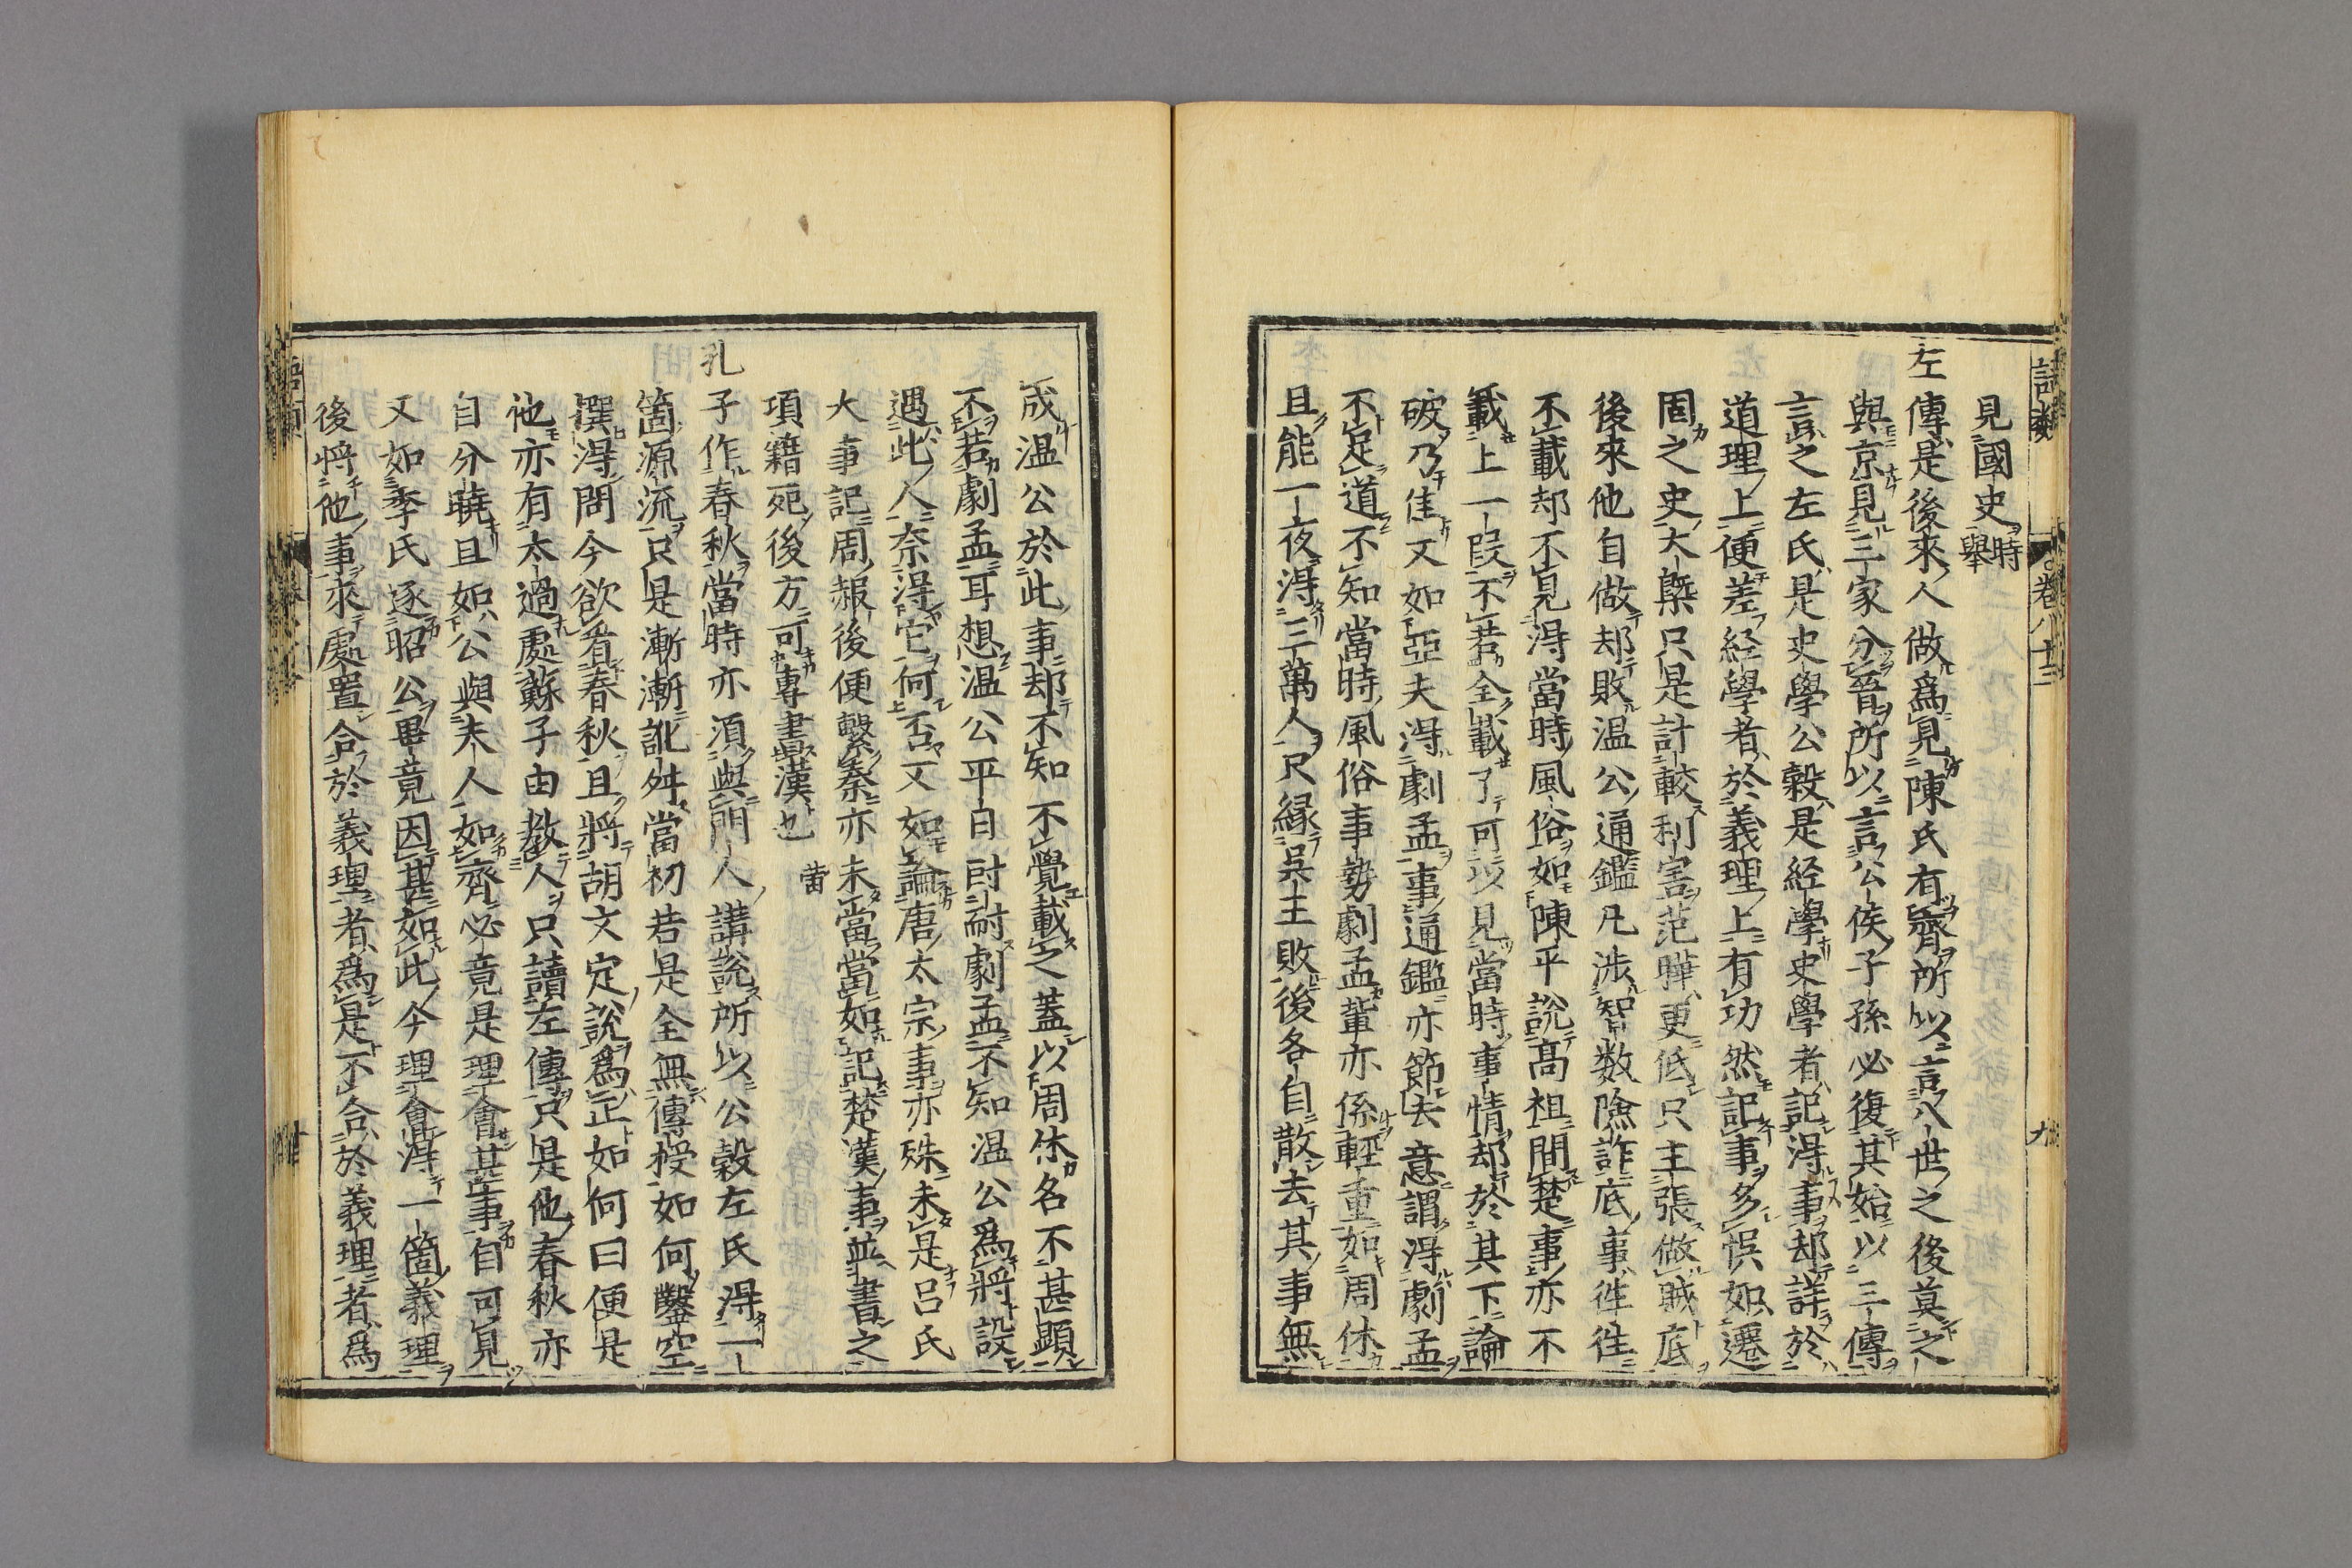 語類
卷八十三
九
見國史時舉
左傳是後來人做爲見陳氏有齊所以言八世之後莫之
與京見三家分晉所以言公侯子孫必復其始以三傳
言之左氏是史學公穀是經學史學者記得事却詳於
道理上便差經學者於義理上有功然記事多悞如遷
固之史大槩只是計較利害范曄更低只主張做賊底
後來他自做却敗温公通鑑凡涉智數險詐底事徃徃
不載却不見得當時風俗如陳平說高祖間楚事亦不
載上一段不若全載了可以見當時事情却於其下論
破乃佳又如亞夫得劇孟事通鑑亦節去意謂得劇孟
不足道不知當時風俗事勢劇孟輩亦係輕重如周休
且能一夜得三萬人只縁吳王敗後各自散去其事無
成温公於此事却不知不覺載之蓋以周休名不甚顯
不若劇孟耳想温公平日尀耐劇孟不知温公爲將設
遇此人奈得它何否又如論唐太宗事亦殊未是吕氏
大事記周赧後便繫秦亦未當當如記楚漢事並書之
項籍死後方可專書漢也㽦
孔子作春秋當時亦須與門人講說所以公穀左氏得一
箇源流只是漸漸訛舛當初若是全無傳授如何鑿空
撰得問今欲看春秋且將胡文定說爲正如何曰便是
他亦有太過處蘇子由教人只讀左傳只是他春秋亦
自分曉且如公與夫人如齊必竟是理會甚事自可見
又如季氏逐昭公畢竟因甚如此今理會得一箇義理
後將他事來處置合於義理者爲是不合於義理者爲
語類